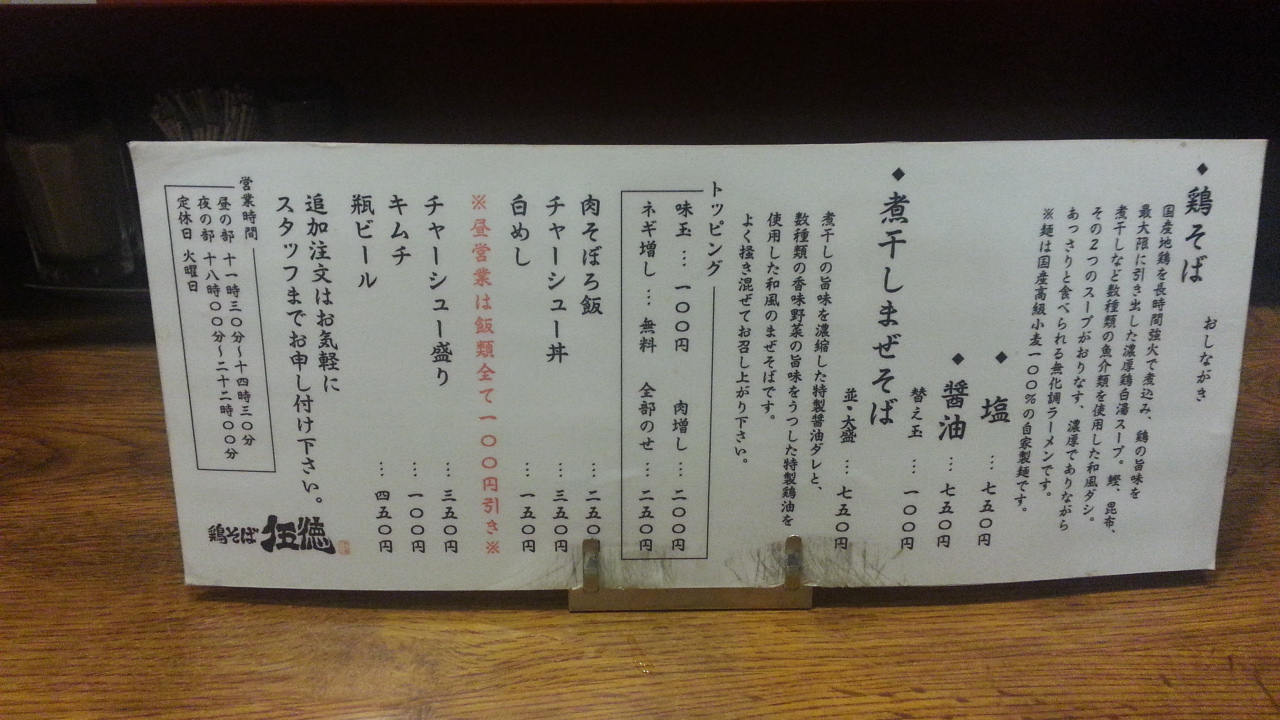 おしながき
◆鶏そば
国産地鶏を長時間強火で煮込み、鶏の旨味を
最大限に引き出した濃厚鶏白湯スープ。鰹、昆布、
煮干しなど数種類の魚介類を使用した和風ダシ。
その2つのスープがおりなす、濃厚でありながら
あっさりと食べられる無化調ラーメンです。
※麺は国産高級小麦一〇〇%の自家製麺です。
◆塩 … 七五〇円
◆醤油 … 七五〇円
替え玉 … 一〇〇円
◆煮干しまぜそば
並・大盛 … 七五〇円
煮干しの旨味を濃縮した特製醤油ダレと、
数種類の香味野菜の旨味をうつした特製鶏油を
使用した和風のまぜそばです。
よく掻き混ぜてお召し上がり下さい。
トッピング
味玉 … 一〇〇円 肉増し … 二〇〇円
ネギ増し … 無料 全部のせ … 二五〇円
肉そぼろ飯 … 二五〇
チャーシュー丼 … 三五〇円
白めし … 一五〇円
※昼営業は飯類全て一〇〇円引き※
チャーシュー盛り … 三五〇円
キムチ … 一〇〇円
瓶ビール … 四五〇円
追加注文はお気軽に
スタッフまでお申し付け下さい。
営業時間
昼の部 十一時三〇分〜十四時三〇分
夜の部 十八時〇〇分〜二十二時〇〇分
定休日 火曜日
鶏そば